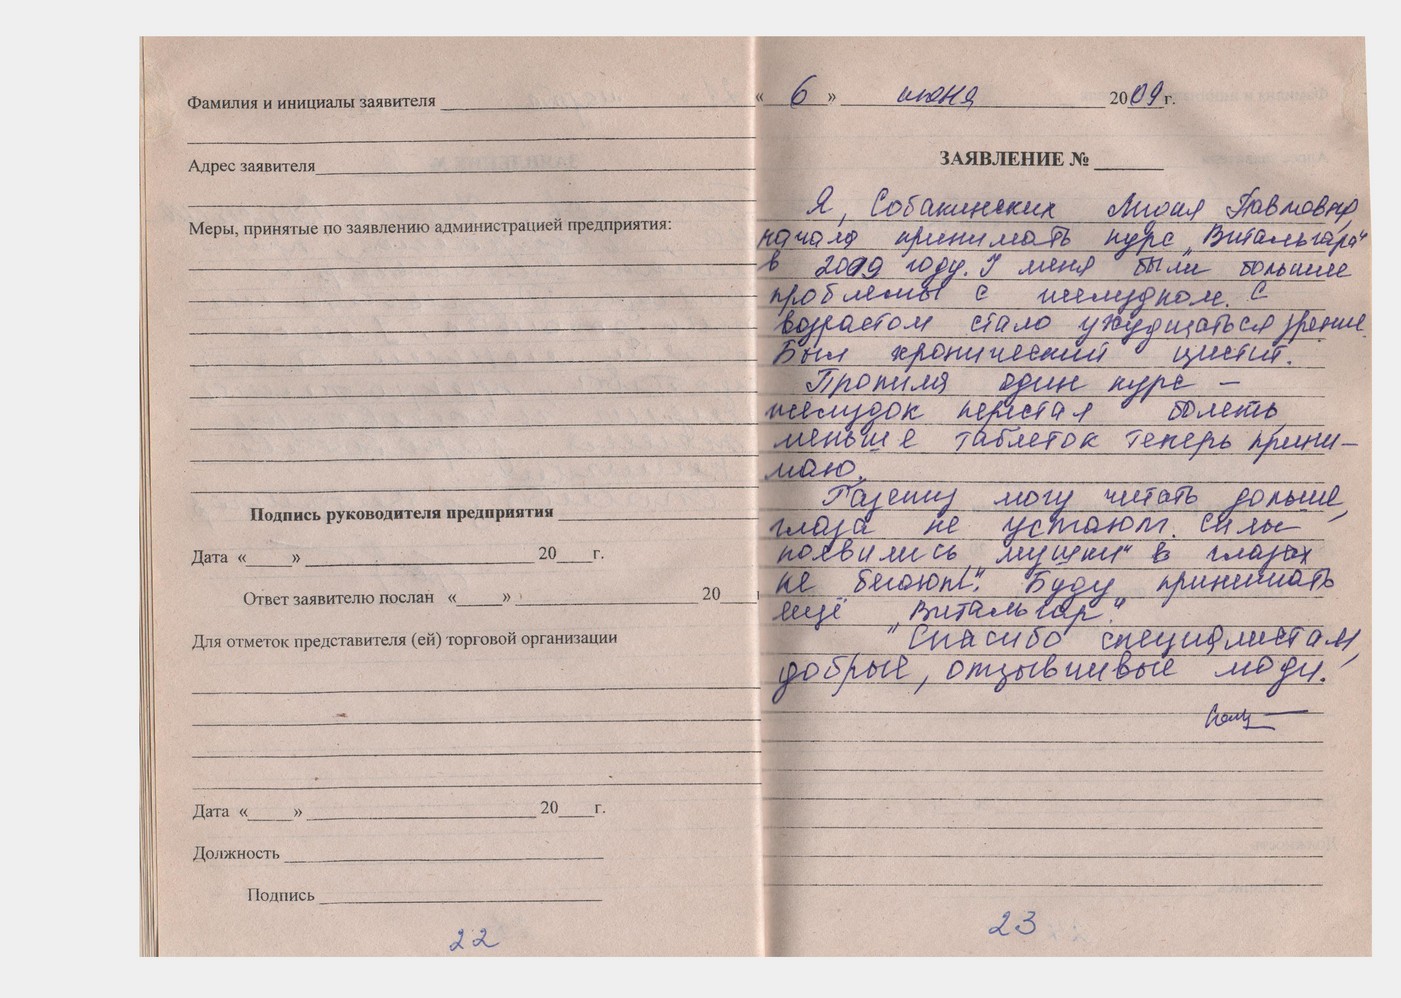 Фамилия и инициалы заявителя
Адрес заявителя
Меры, принятые по заявлению администрацией предприятия:
Подпись руководителя предприятия
Дата « » 20 г.
Ответ заявителю послан « » 20
Для отметок представителя (ей) торговой организации
Дата « » 20 г.
Должность
Подпись
22
« 6 » июня 2009 г.
ЗАЯВЛЕНИЕ №
Я, Собакинских Лидия Павловна,
начала принимать курс „Витальгара“
в 2009 году. У меня были большие
проблемы с желудком. С
возрастом стало ухудшаться зрение.
Был хронический цистит.
Пропила один курс –
желудок перестал болеть,
меньше таблеток теперь прини–
маю.
Газету могу читать дольше,
глаза не устают. Силы
появились, „мушки“ в глазах
не бегают!". Буду принимать
ещё „Витальгар".
"Спасибо специалистам,
добрые, отзывчивые люди!
23